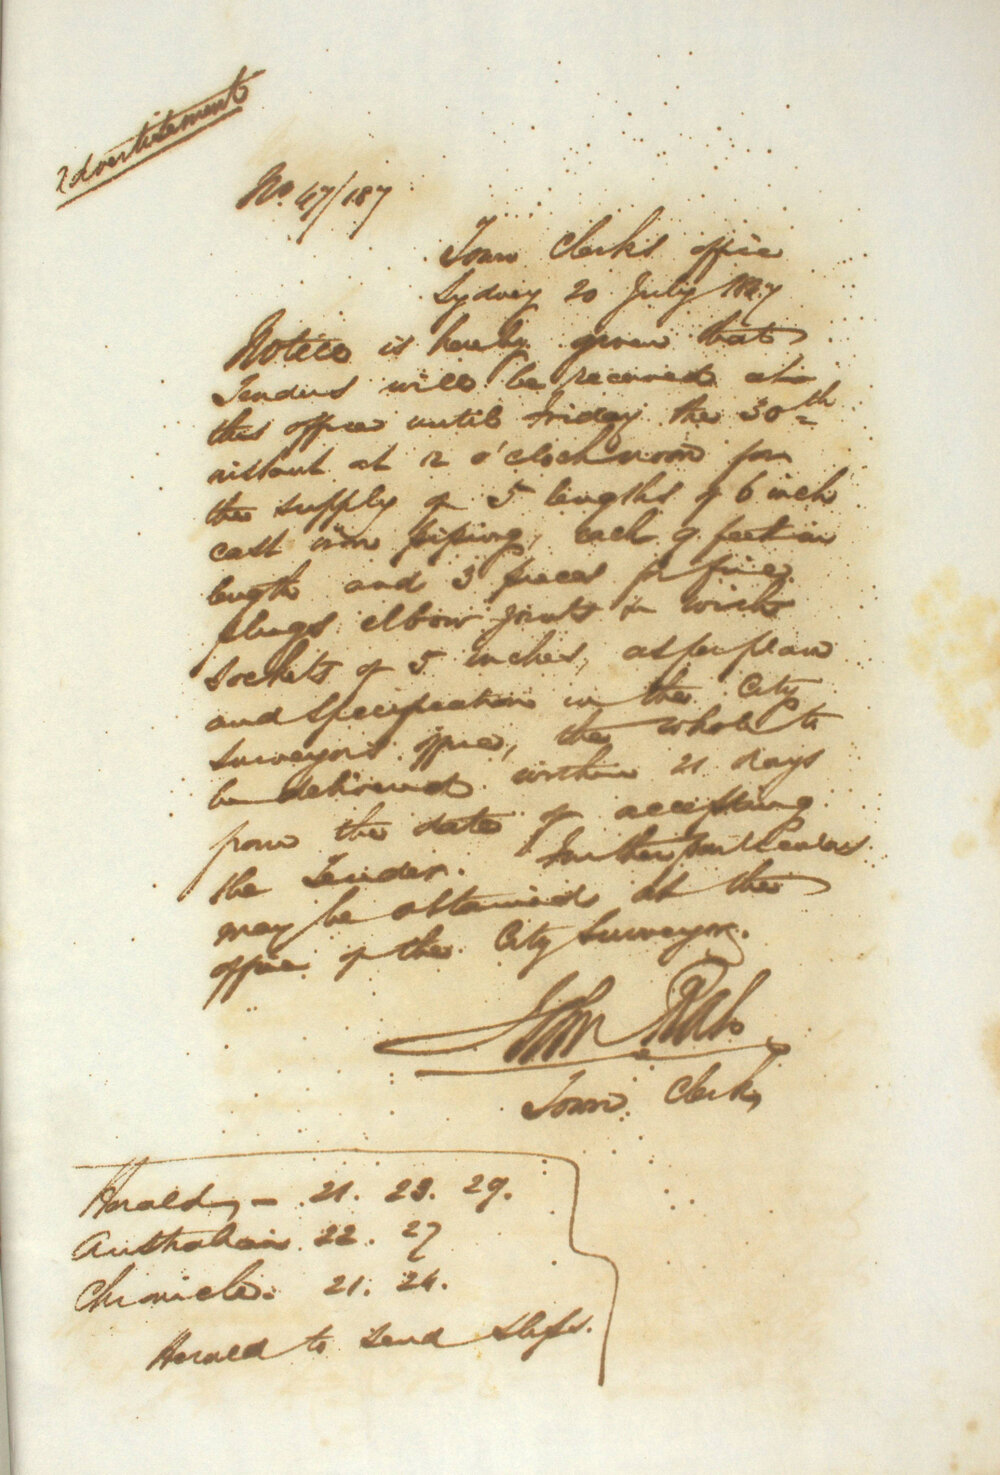 Advertisement
No. 47/187
Town Clerks office
Sydney 20 July 1847
Notice is hereby given that
Tenders will be received at
this office until Friday the 30th
instant at 12 o'clock noon for
the supply of 5 lengths of 6 inch
cast iron piping, each 9 feet in
length and 3 pieces for fire
plugs elbow joints with
sockets of 5 inches, as per plan
and specification in the City
Surveyors office, the whole to
be delivered within 21 days
from the date of accepting
the Tender. Further particulars
may be obtained at the
office of the City Surveyor.
John Rae
Town Clerk
Herald - 21. 23. 29.
Australian 22. 27
Chronicle. 21. 24.
Herald to send slips.